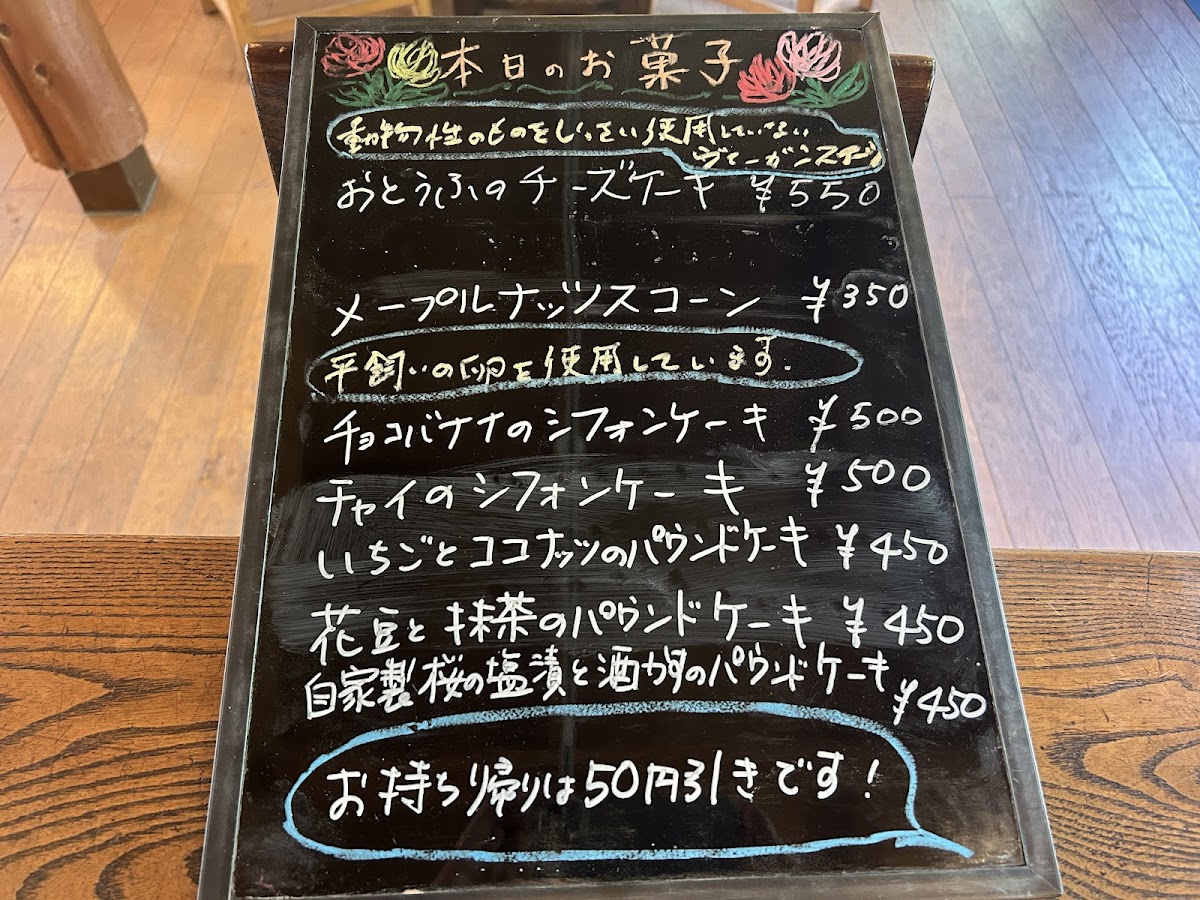 本日のお菓子
動物性のものをいっさい使用していない
ヴィーガンスイーツ
おとうふのチーズケーキ ¥550
メープルナッツスコーン ¥350
平飼いの卵を使用しています.
チョコバナナのシフォンケーキ ¥500
チャイのシフォンケーキ ¥500
いちごとココナッツのパウンドケーキ ¥450
花豆と抹茶のパウンドケーキ ¥450
自家製桜の塩漬と酒かすのパウンドケーキ
¥450
お持ち帰りは50円引きです!